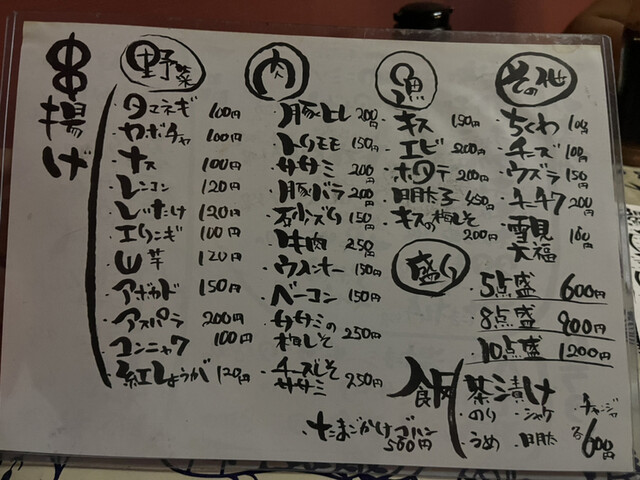 串揚げ
野菜
タマネギ 100円
カボチャ 100円
ナス 100円
レンコン 120円
しいたけ 120円
エリンギ 100円
山芋 120円
アボカド 150円
アスパラ 200円
コンニャク 100円
紅しょうが 120円
肉
・豚ヒレ 200円
・トリモモ 150円
・ササミ 200円
・豚バラ 200円
・砂ズリ 150円
・牛肉 250円
・ウインナー 150円
・ベーコン 150円
・ササミの
梅しそ 250円
・チーズしそ
ササミ 250円
魚
・キス 150円
・エビ 200円
・ホタテ 200円
・明太子
・キスの梅しそ
200円
その他
・ちくわ 100円
・チーズ 100円
・ウズラ 150円
・チーチク 200円
・雪見
大福
盛り
5点盛 600円
8点盛 900円
10点盛 1200円
飯
茶漬け
・のり ・シャケ ・チャンジャ
・うめ ・明太 各600円
・たまごかけゴハン
500円